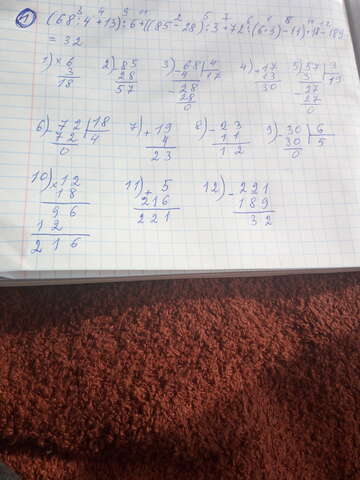 1
3 4 9 11 2 5 7 6 1 8 10 12
(68:4+13):6+((85-28):3+72:(6·3)-11)·18-189=
=32
1) ×6 3 18 2) 85 28 57 3) -68 4 4 17 -28 28 0 4) +17 13 30 5) 57 3 3 19 -27 27 0
6) -72 18 72 4 0 7) +19 4 23 8) -23 11 12 9) -30 6 30 5 0
10) ×12 18 96 12 216 11) +5 216 221 12) -221 189 32